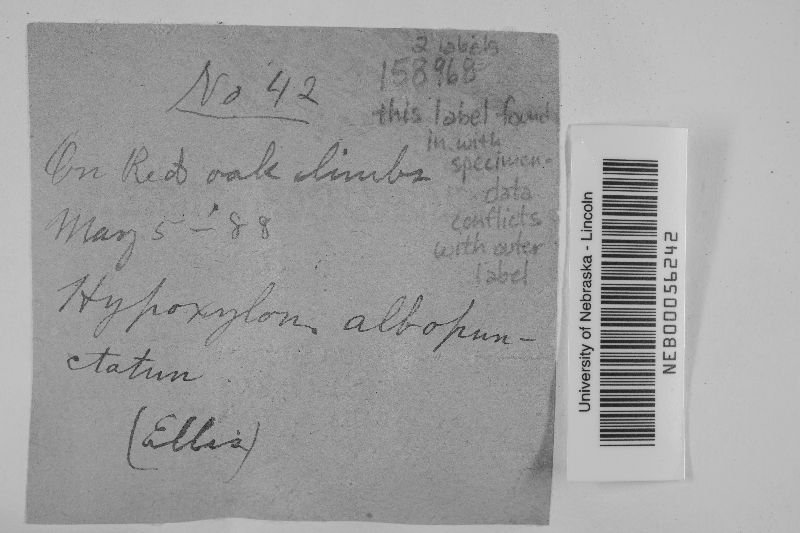 No 42
On Red oak limbs
May 5 - '88
Hypoxylon albopun-
ctatum
(Ellis)
2 labels
158968
this label found
in with
specimen -
data
conflicts
with outer
label
University of Nebraska - Lincoln
NEB00056242